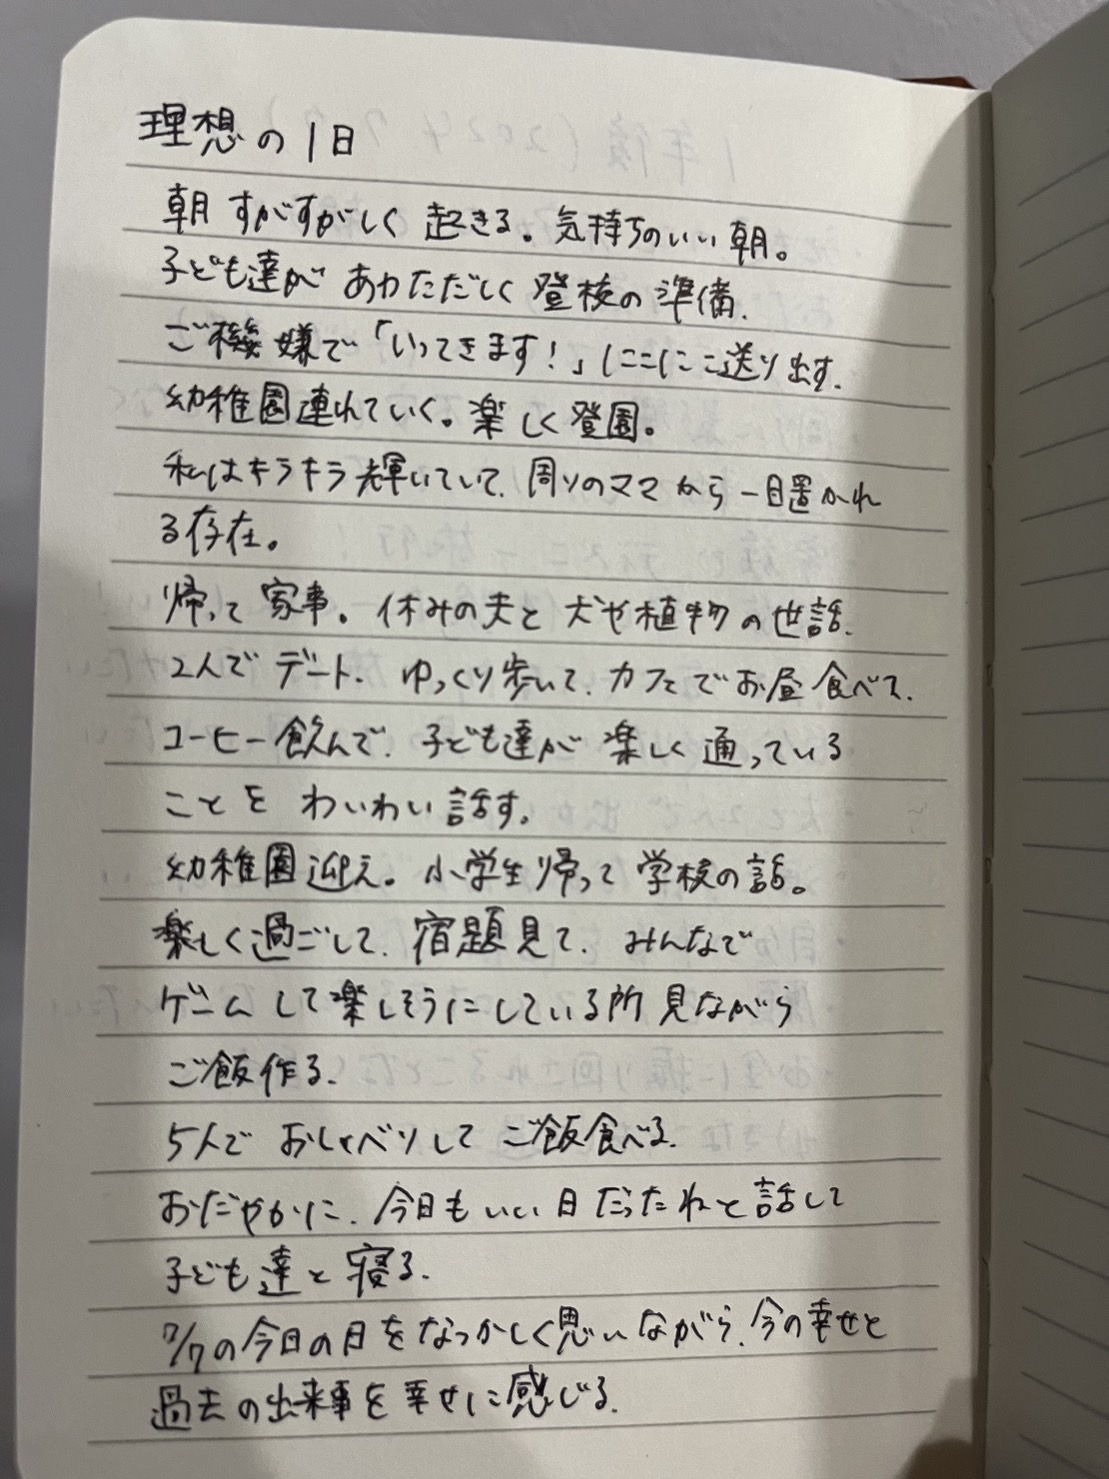 理想の1日
朝 すがすがしく 起きる。気持ちのいい朝。
子ども達が あわただしく 登校の準備.
ご機嫌で「いってきます!」にこにこ送り出す.
幼稚園連れていく。楽しく登園。
私はキラキラ輝いていて、周りのママから一目置かれ
る存在。
帰って家事。休みの夫と犬や植物の世話.
2人でデート. ゆっくり歩いて、カフェでお昼食べて、
コーヒー飲んで、子ども達が楽しく通っている
ことを わいわい話す。
幼稚園迎え。小学生帰って学校の話。
楽しく過ごして、宿題見て、みんなで
ゲームして楽しそうにしている所見ながら
ご飯作る.
5人で おしゃべりして ご飯食べる.
おだやかに、今日もいい日だったねと話して
子ども達と寝る.
7/7の今日の日をなつかしく思いながら、今の幸せと
過去の出来事を幸せに感じる.